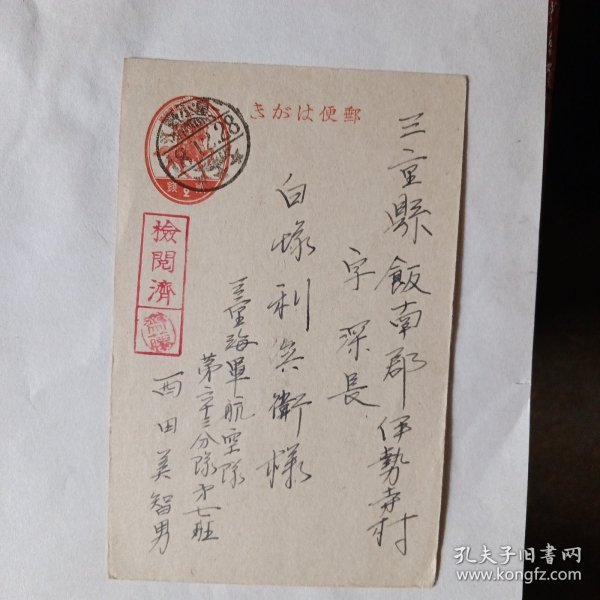 郵便はがき
三重縣飯南郡伊勢寺村
字深長
白塚利兵衛様
三重海軍航空隊
第六十三分隊才七班
西田美智男
檢閲濟
2
孔夫子旧书网
www.kongfz.com